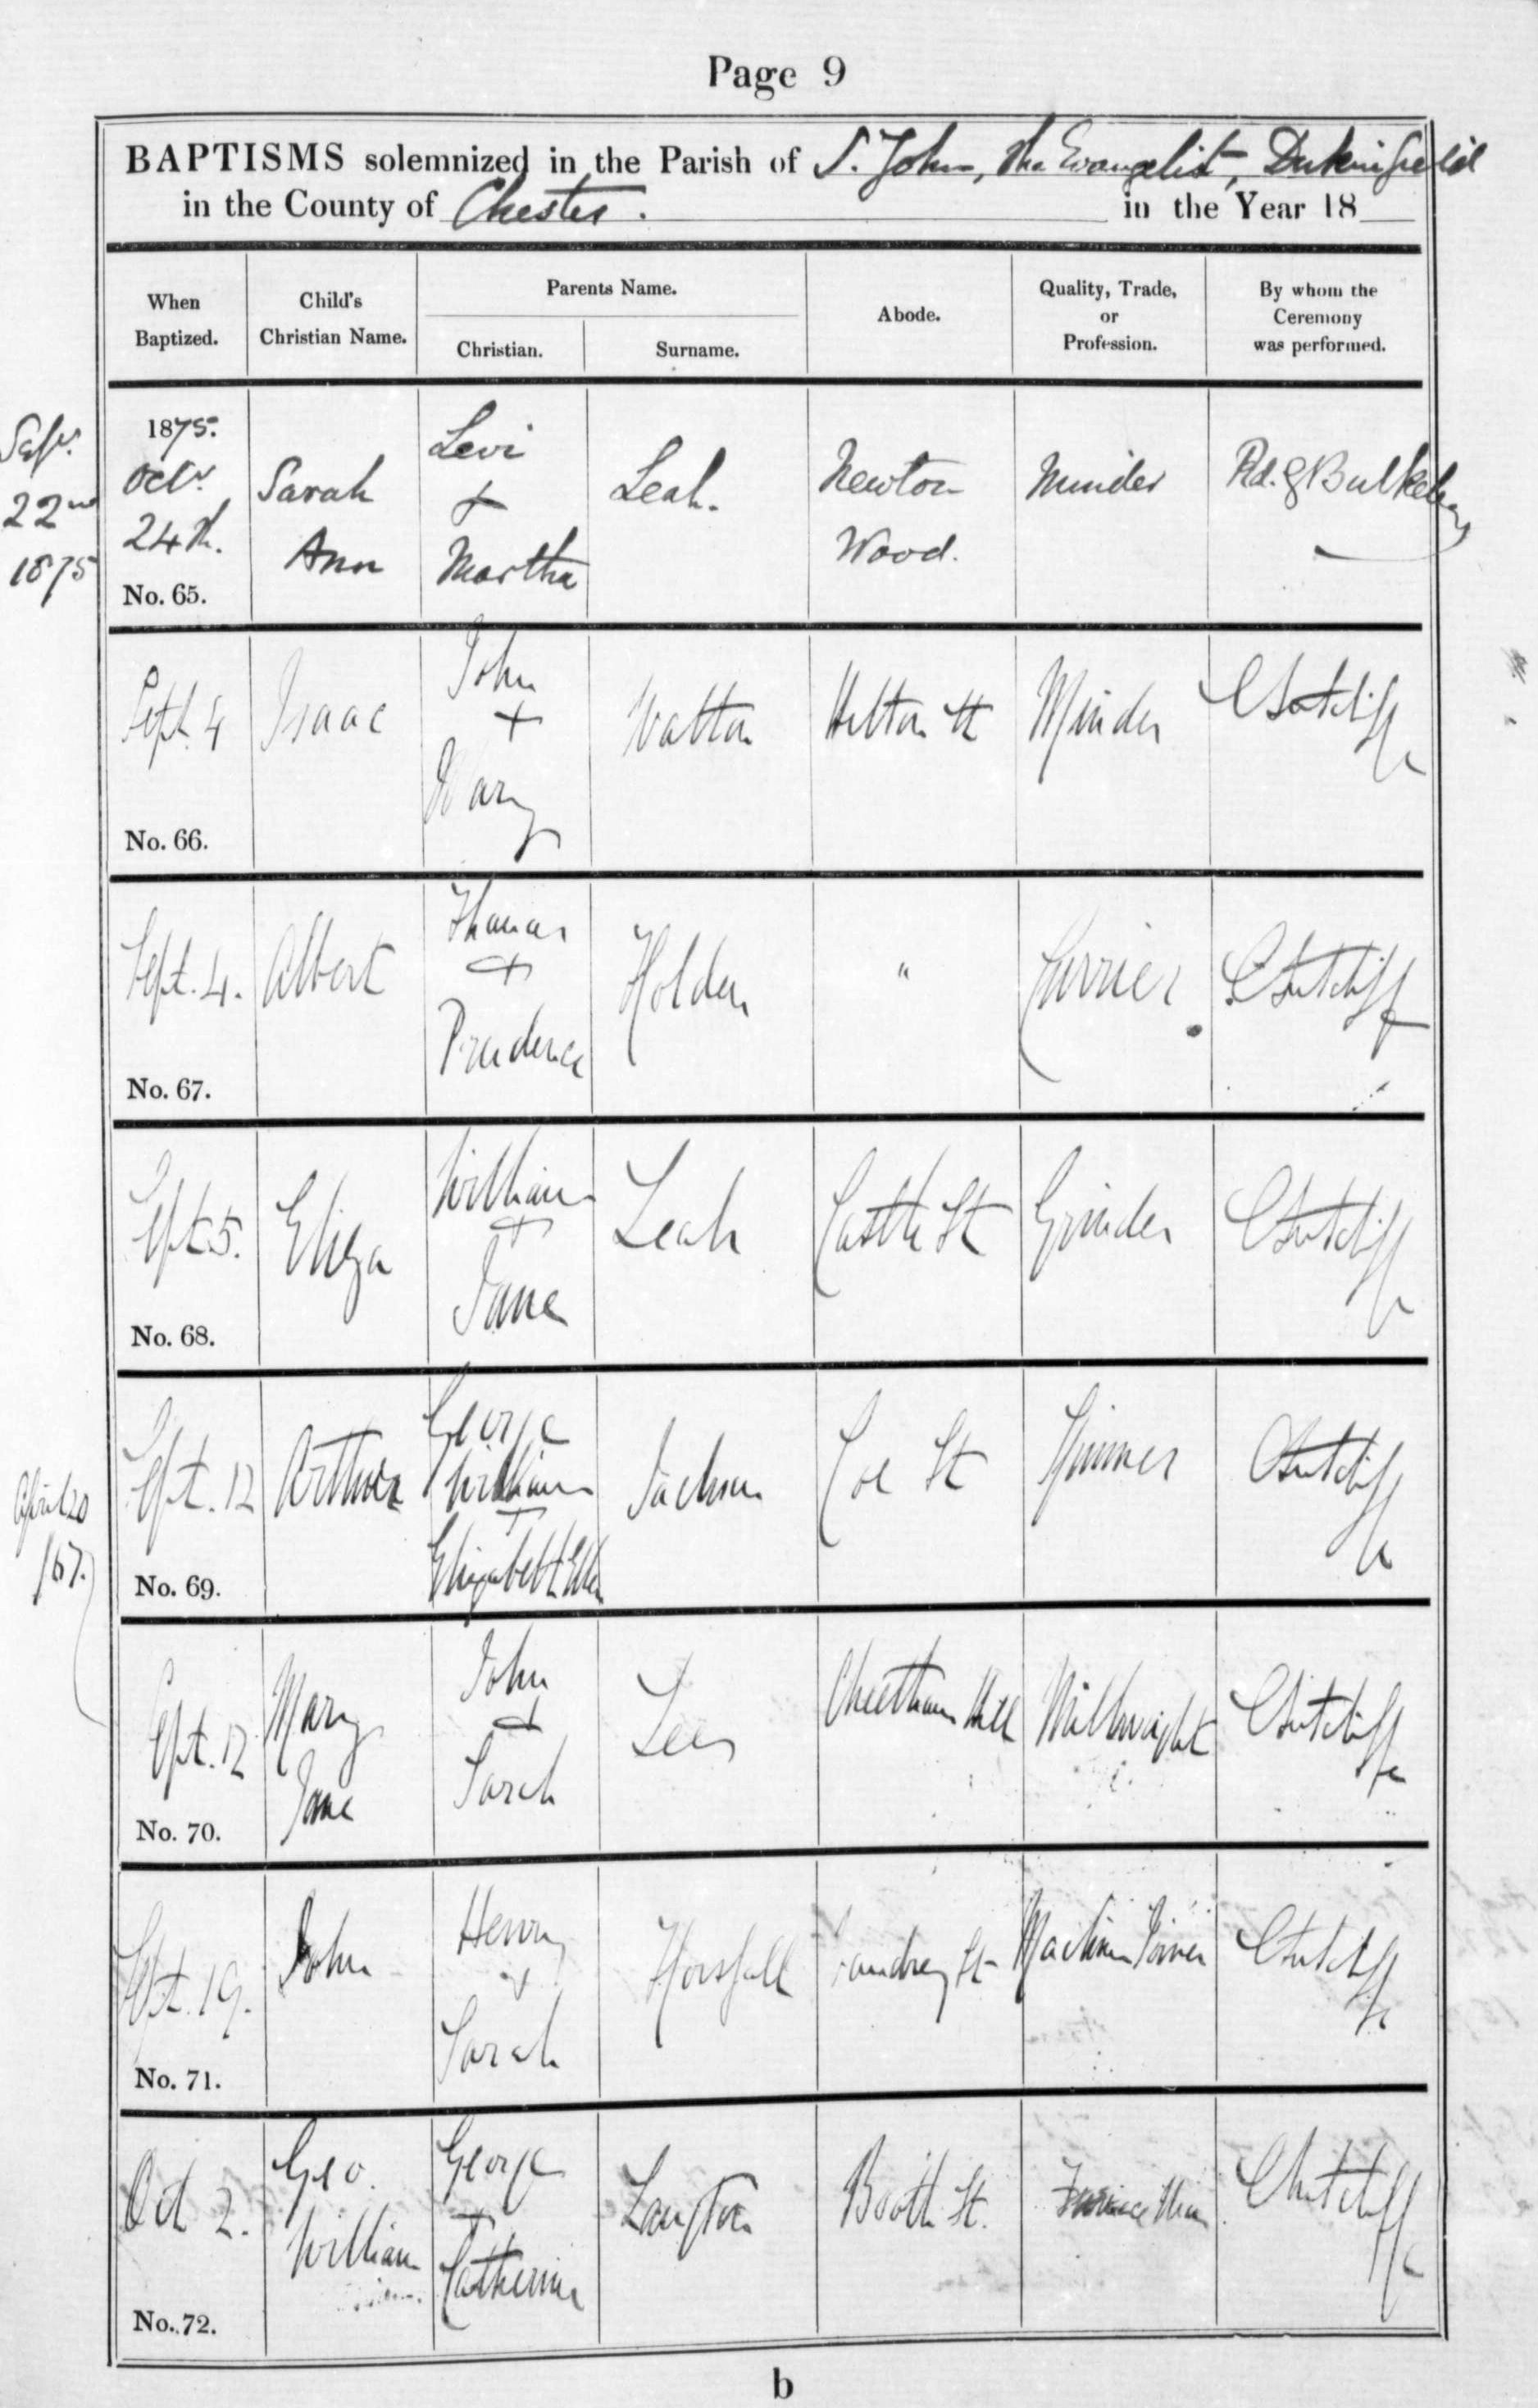 Page 9
BAPTISMS solemnized in the Parish of S. John, the Evangelist, Dukinfield
in the County of Chester. in the Year 18
When Baptized.
Child's Christian Name.
Parents Name.
Christian.
Surname.
Abode.
Quality, Trade, or Profession.
By whom the Ceremony was performed.
22nd
1875
1875.
Octr.
24th.
No. 65.
Sarah
Ann
Levi
+
Martha
Leah.
Newton
Wood.
Minder
Rd. Bulkeley
Sept. 4
No. 66.
Isaac
John
+
Mary
Watton
St
Minder
C Sutcliffe
Sept. 4.
No. 67.
Albert
Thomas
+
Prudence
Holden
"
Currier
C Sutcliffe
Sept 5.
No. 68.
Eliza
William
+
Jane
Leah
Castle St
Grinder
C Sutcliffe
April 20
/67.
Sept. 12
No. 69.
Arthur
George
William
+
Elizabeth Ellen
Jackson
Coe St
Spinner
C Sutcliffe
Sept. 12
No. 70.
Mary
Jane
John
+
Sarah
Lees
Cheetham Hill
Millwright
C Sutcliffe
Sept. 19.
No. 71.
John
Henry
+
Sarah
Horsfall
St
Machine Joiner
C Sutcliffe
Oct 2.
No. 72.
Geo.
William
George
+
Catherine
Langton
Booth St.
Furnace Man
C Sutcliffe
b